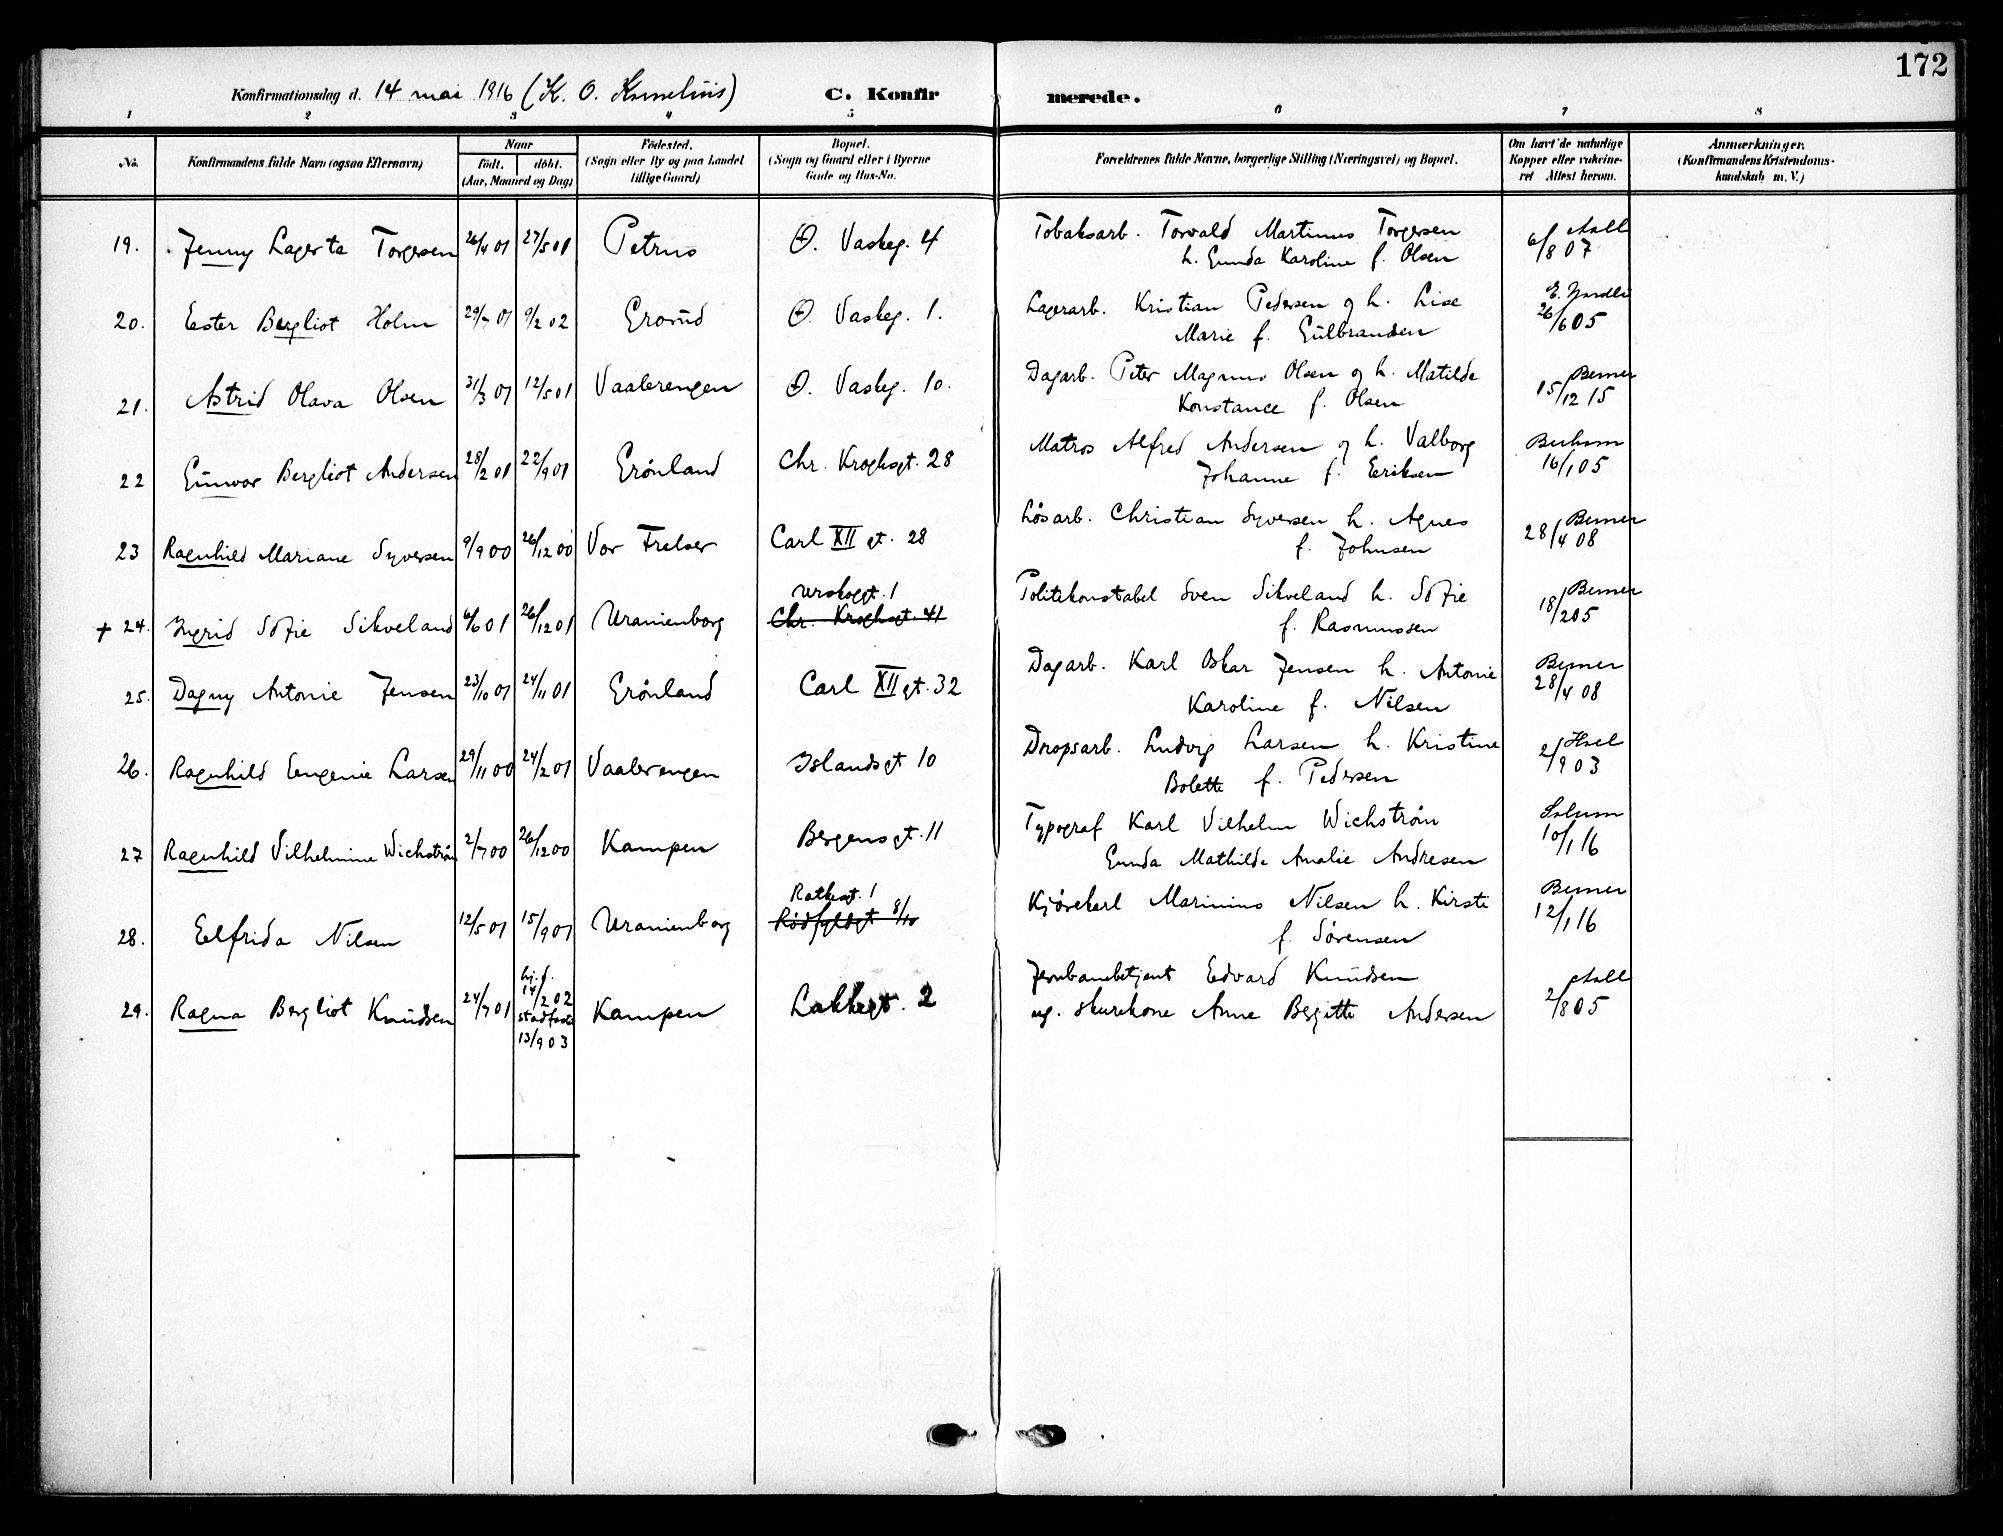 172
Konfirmationsdag d. 14 mai 1916 (K. O. Kornelius) C. Konfirmerede.
1 2 3 4 5 6 7 8
No.
Konfirmandens fulde Navn (ogsaa Efternavn)
Naar
født. døbt.
(Aar, Maaned og Dag)
Fødested.
(Sogn eller By og paa Landet
tillige Gaard)
Bopæl.
(Sogn og Gaard eller i Byerne
Gade og Hus-No.
Forældrenes fulde Navne, borgerlige Stilling (Næringsvei) og Bopæl.
Om havt de naturlige
Kopper eller vakcine-
ret Attest herom.
Anmærkninger.
(Konfirmandens Kristendoms-
kundskab m. V.)
19. Jenny Lagerta Torgersen 26/4 01 27/5 01 Petrus Ø. Vaskeg. 4 Tobaksarb. Torvald Martinus Torgersen
h. Gunda Karoline f. Olsen 6/8 07 Aall
20. Ester Bergliot Holm 29/7 01 9/2 02 Grorud Ø. Vaskeg. 1. Lagerarb. Kristian Pedersen og h. Lise
Marie f. Gulbrandsen 26/6 05
21. Astrid Olava Olsen 31/3 01 12/5 01 Vaalerengen Ø. Vaskeg. 10. Dagarb. Peter Magnus Olsen og h. Matilde
Konstance f. Olsen Berner 15/12 15
22 Gunvor Bergliot Andersen 28/2 01 22/9 01 Grønland Chr. Kroghsgt. 28 Matros Alfred Andersen og h. Valborg
Johanne f. Eriksen 16/1 05
23 Ragnhild Mariane Syversen 9/9 00 26/12 00 Vor Frelser Carl XII gt. 28 Løsarb. Christian Syversen h. Agnes
f. Johnsen Berner 28/4 08
+ 24. Ingrid Sofie Sikveland 4/6 01 26/12 01 Uranienborg Urskoggt. 1
Chr. Kroghsgt. 41 Politikonstabel Sven Sikveland h. Sofie
f. Rasmussen Berner 18/2 05
25. Dagny Antonie Jensen 23/10 01 24/11 01 Grønland Carl XII gt. 32 Dagarb. Karl Oskar Jensen h. Antonie
Karoline f. Nilsen Berner 28/4 08
26. Ragnhild Eugenie Larsen 29/11 00 24/2 01 Vaalerengen Islandsgt 10 Dropsarb. Ludvig Larsen h. Kristine
Bolette f. Pedersen 2/9 03
27 Ragnhild Vilhelmine Wichstrøm 2/7 00 26/12 00 Kampen Bergensgt. 11 Typograf Karl Vilhelm Wichstrøm
Gunda Mathilde Amalie Andresen 10/1 16
28. Elfrida Nilsen 12/5 01 15/9 01 Uranienborg Ratkesgt. 1
Rødfyldgt 8/10 Kjørekarl Marinius Nilsen h. Kirsti
f. Sørensen Berner 12/1 16
29. Ragna Bergliot Knudsen 24/7 01 hj.d. 14/2 02
stadfæstet
13/9 03 Kampen Lakkegt. 2 Jernbanebetjent Edvard Knudsen
ug. skurekone Anne Bergitte Andersen Aall 2/8 05